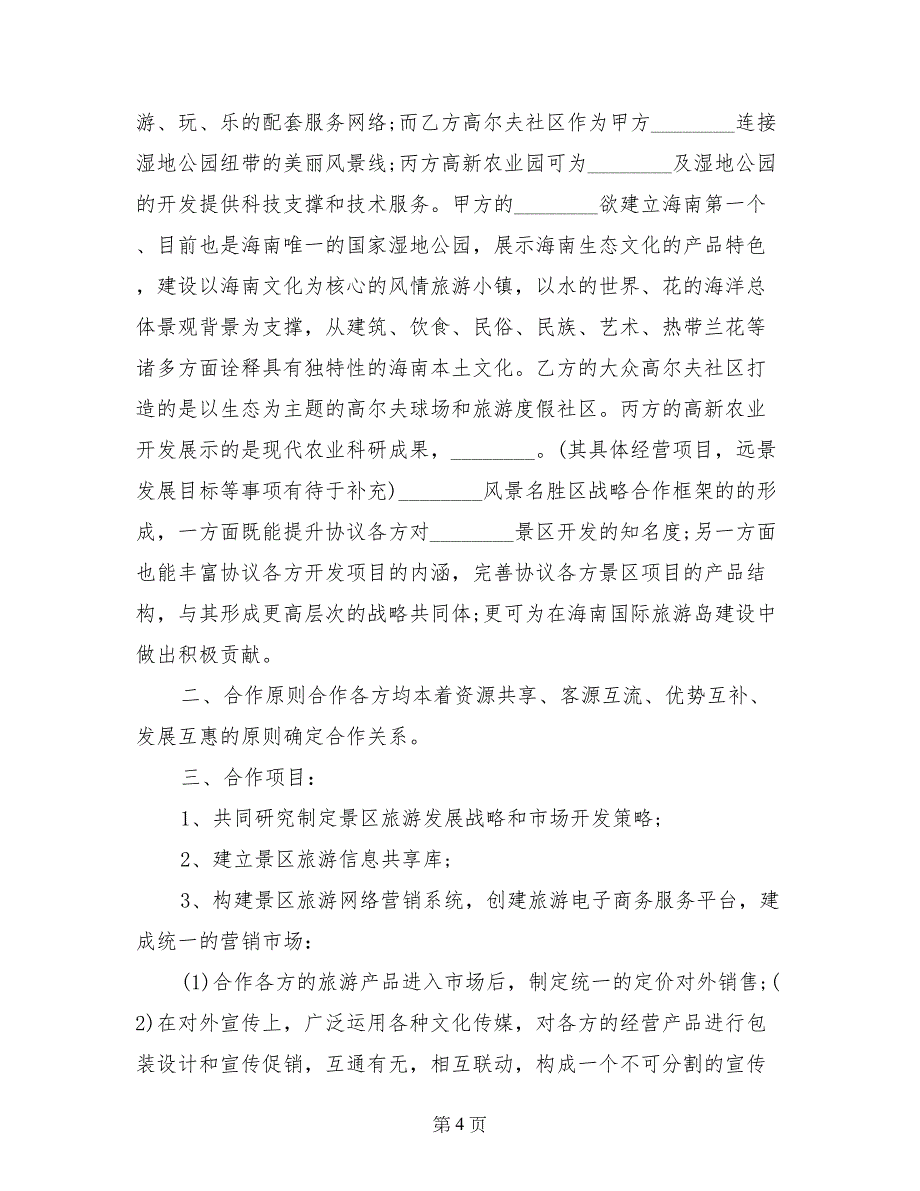 游、玩、乐的配套服务网络;而乙方高尔夫社区作为甲方________连接
湿地公园纽带的美丽风景线;丙方高新农业园可为________及湿地公园
的开发提供科技支撑和技术服务。甲方的________欲建立海南第一个
、目前也是海南唯一的国家湿地公园，展示海南生态文化的产品特色
，建设以海南文化为核心的风情旅游小镇，以水的世界、花的海洋总
体景观背景为支撑，从建筑、饮食、民俗、民族、艺术、热带兰花等
诸多方面诠释具有独特性的海南本土文化。乙方的大众高尔夫社区打
造的是以生态为主题的高尔夫球场和旅游度假社区。丙方的高新农业
开发展示的是现代农业科研成果，________。(其具体经营项目，远景
发展目标等事项有待于补充)________风景名胜区战略合作框架的的形
成，一方面既能提升协议各方对________景区开发的知名度;另一方面
也能丰富协议各方开发项目的内涵，完善协议各方景区项目的产品结
构，与其形成更高层次的战略共同体;更可为在海南国际旅游岛建设中
做出积极贡献。
二、合作原则合作各方均本着资源共享、客源互流、优势互补、
发展互惠的原则确定合作关系。
三、合作项目：
1、共同研究制定景区旅游发展战略和市场开发策略;
2、建立景区旅游信息共享库;
3、构建景区旅游网络营销系统，创建旅游电子商务服务平台，建
成统一的营销市场：
(1)合作各方的旅游产品进入市场后，制定统一的定价对外销售;(
2)在对外宣传上，广泛运用各种文化传媒，对各方的经营产品进行包
装设计和宣传促销，互通有无，相互联动，构成一个不可分割的宣传
第 4 页